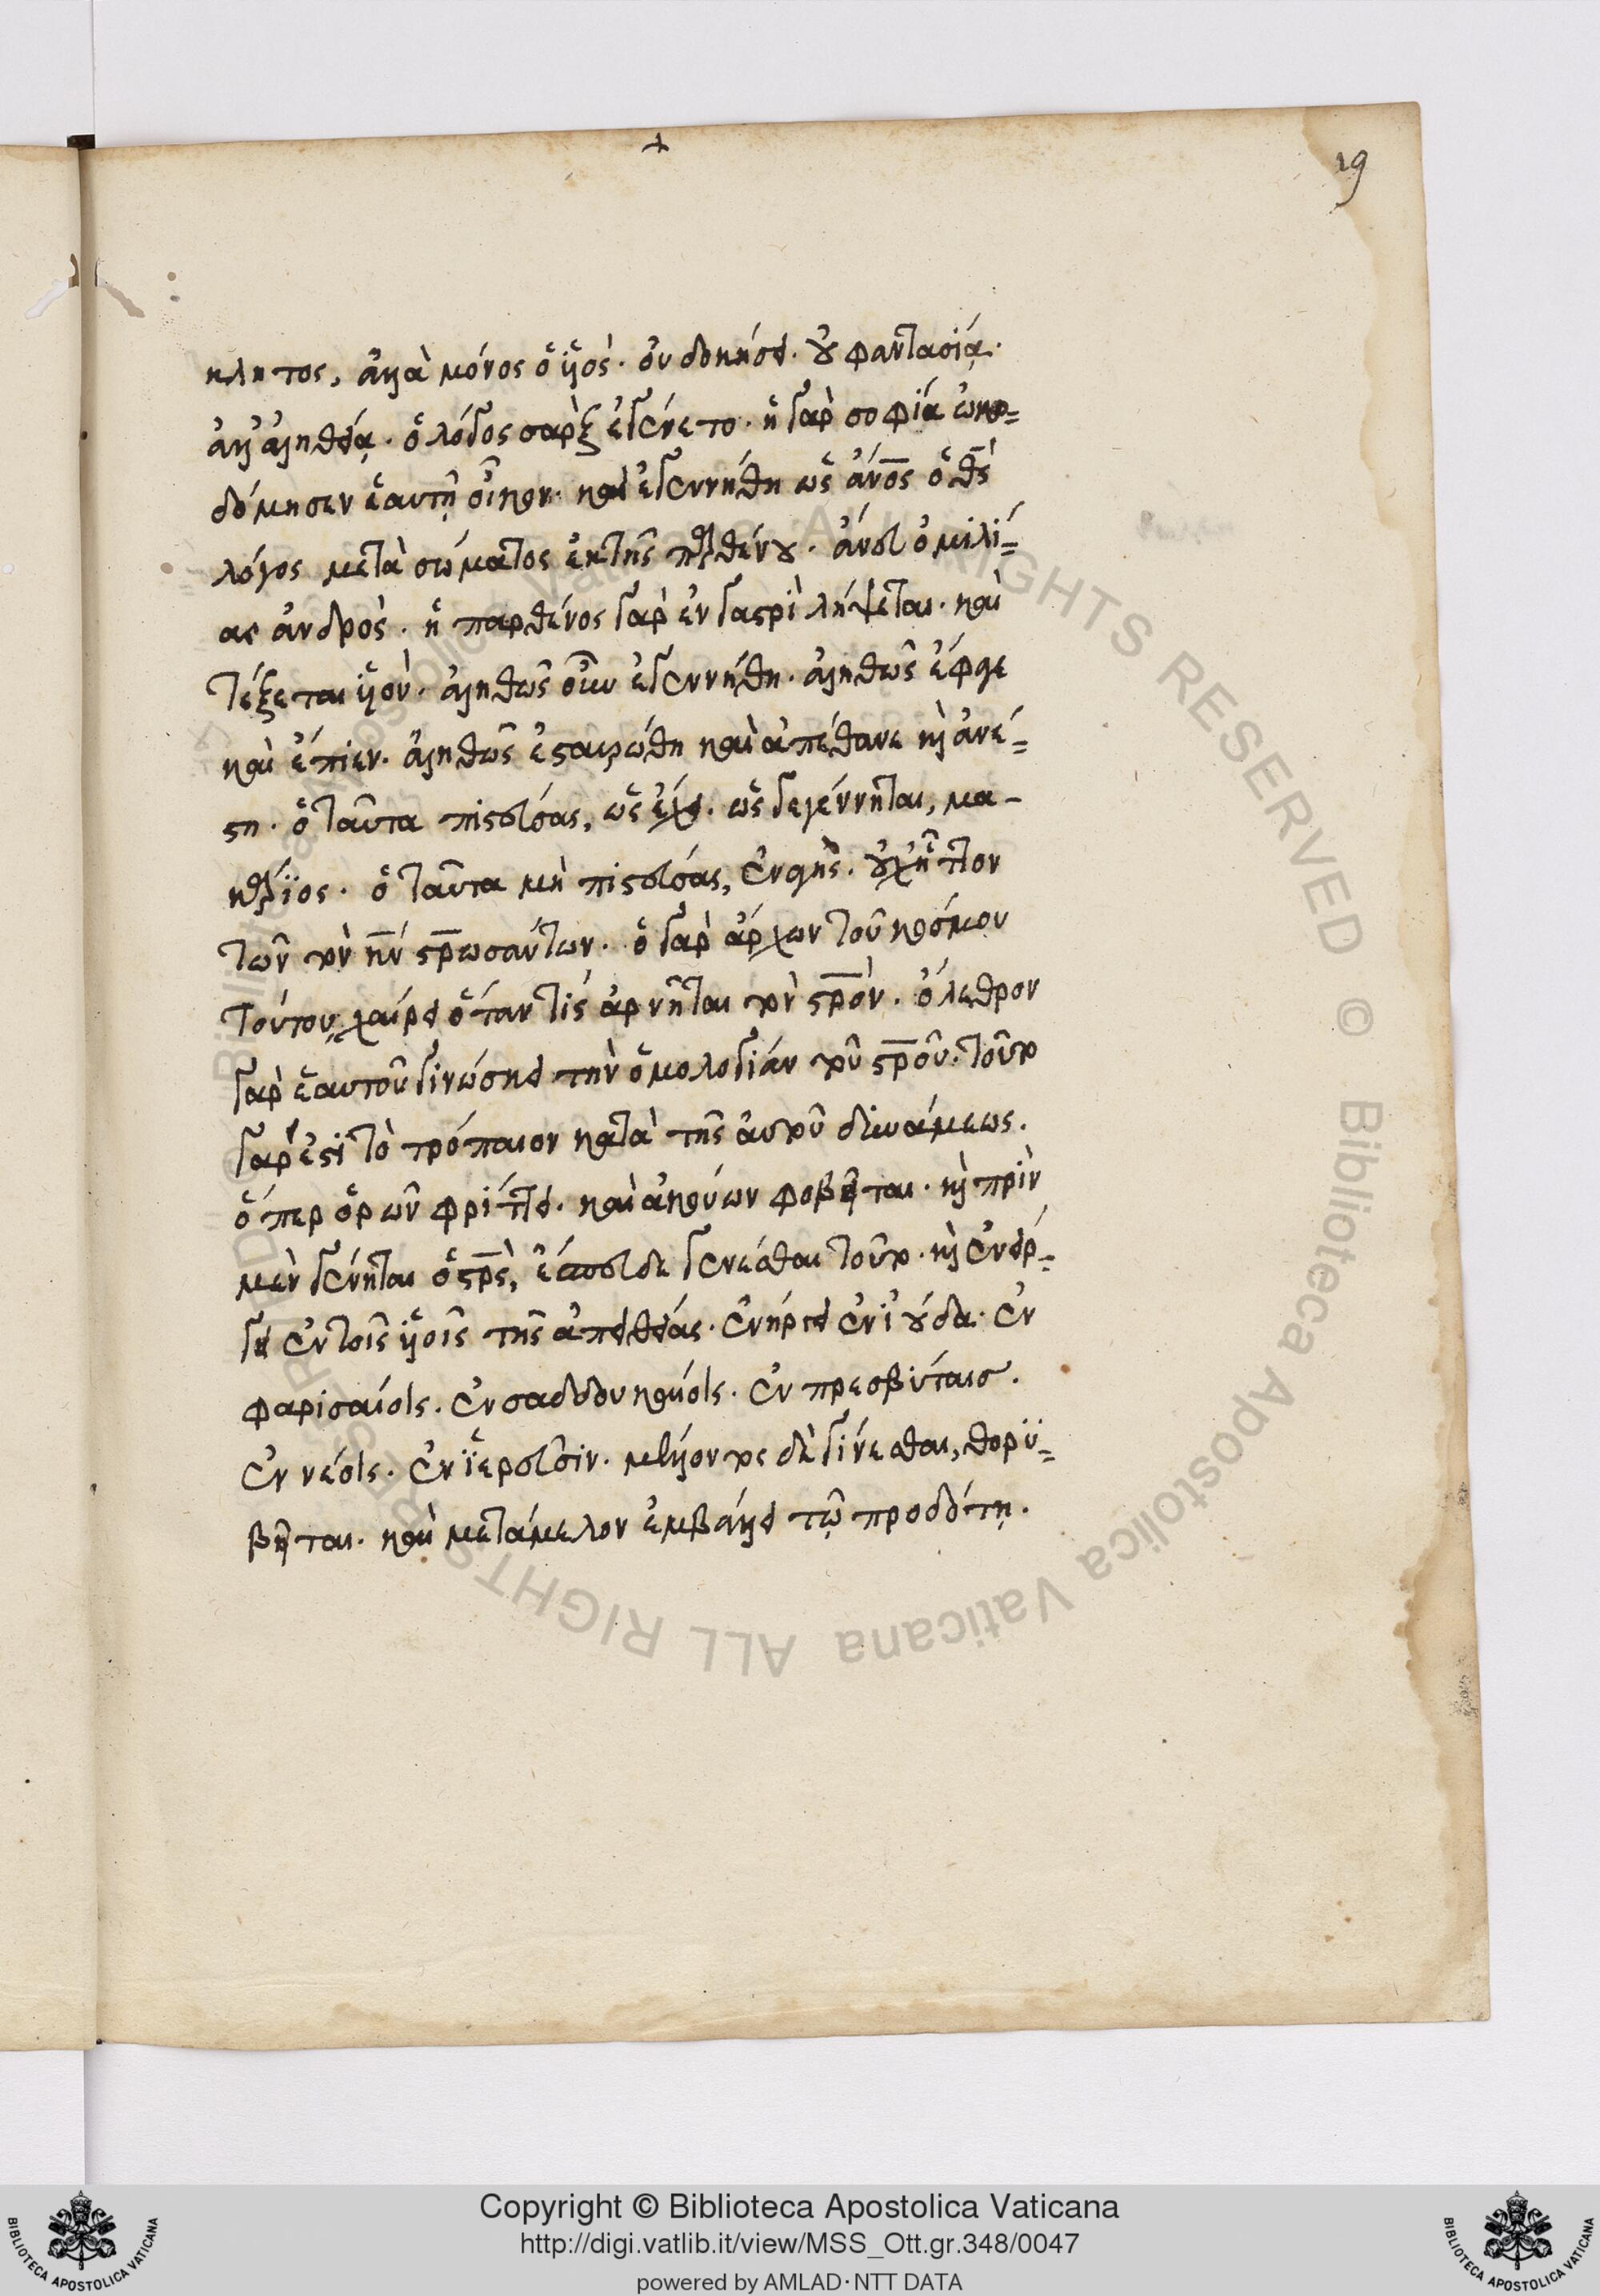 κλητος, ἀλλὰ μόνος ὁ ὑιὸς. οὐ δοκήσει. οὐ φαντασίᾳ.
ἀλλ' ἀληθείᾳ. ὁ λόγος σὰρξ ἐγένετο. ἡ γὰρ σοφία ὠκο=
δόμησεν ἑαυτῇ οἶκον. καὶ ἐγεννήθη ὡς ἄνος ὁ θς
λόγος μετὰ σώματος ἐκ τῆς παρθένου. ἄνευ ὁμιλί=
ας ἀνδρὸς. ἡ παρθένος γὰρ ἐν γαστρὶ λήψεται. καὶ
τέξεται ὑιὸν. ἀληθῶς οὖν ἐγεννήθη. ἀληθῶς ἔφαγε
καὶ ἔπιεν. ἀληθῶς ἐσταυρώθη καὶ ἀπέθανε καὶ ἀνέ=
στη. ὁ ταῦτα πιστεύσας, ὡς ἔχει. ὡς γεγέννηται, μα-
κάριος. ὁ ταῦτα μὴ πιστεύσας, ἐναγὴς. οὐχ ἧττον
τῶν τὸν κν στρωσάντων. ὁ γὰρ ἄρχων τοῦ κόσμου
τούτου χαίρει ὅταν τίς ἀρνῆται τὸν στρον. ὄλεθρον
γὰρ ἑαυτοῦ γινώσκει τὴν ὁμολογίαν τοῦ στρου. τοῦτο
γάρ ἐστι τὸ τρόπαιον κατὰ τῆς αὐτοῦ δυνάμεως.
ὅπερ ὁρῶν φρίττει. καὶ ἀκούων φοβεῖται. καὶ πρὶν
μὲν γένηται ὁ στρς, ἔσπευδε γενέσθαι τοῦτο. καὶ ἐνήρ=
γει ἐν τοῖς ὑιοῖς τῆς ἀπειθείας. ἐνήργει ἐν ἰούδα. ἐν
φαρισαίοις. ἐν σαδδουκαίοις. ἐν πρεσβύταισ.
ἐν νέοις. ἐν ἱερεῦσιν. μέλλοντος δὲ γίνεσθαι, θορυ=
βεῖται. καὶ μετάμελον ἐμβάλλει τῷ προδότῃ.
19
Copyright © Biblioteca Apostolica Vaticana
http://digi.vatlib.it/view/MSS_Ott.gr.348/0047
powered by AMLAD·NTT DATA